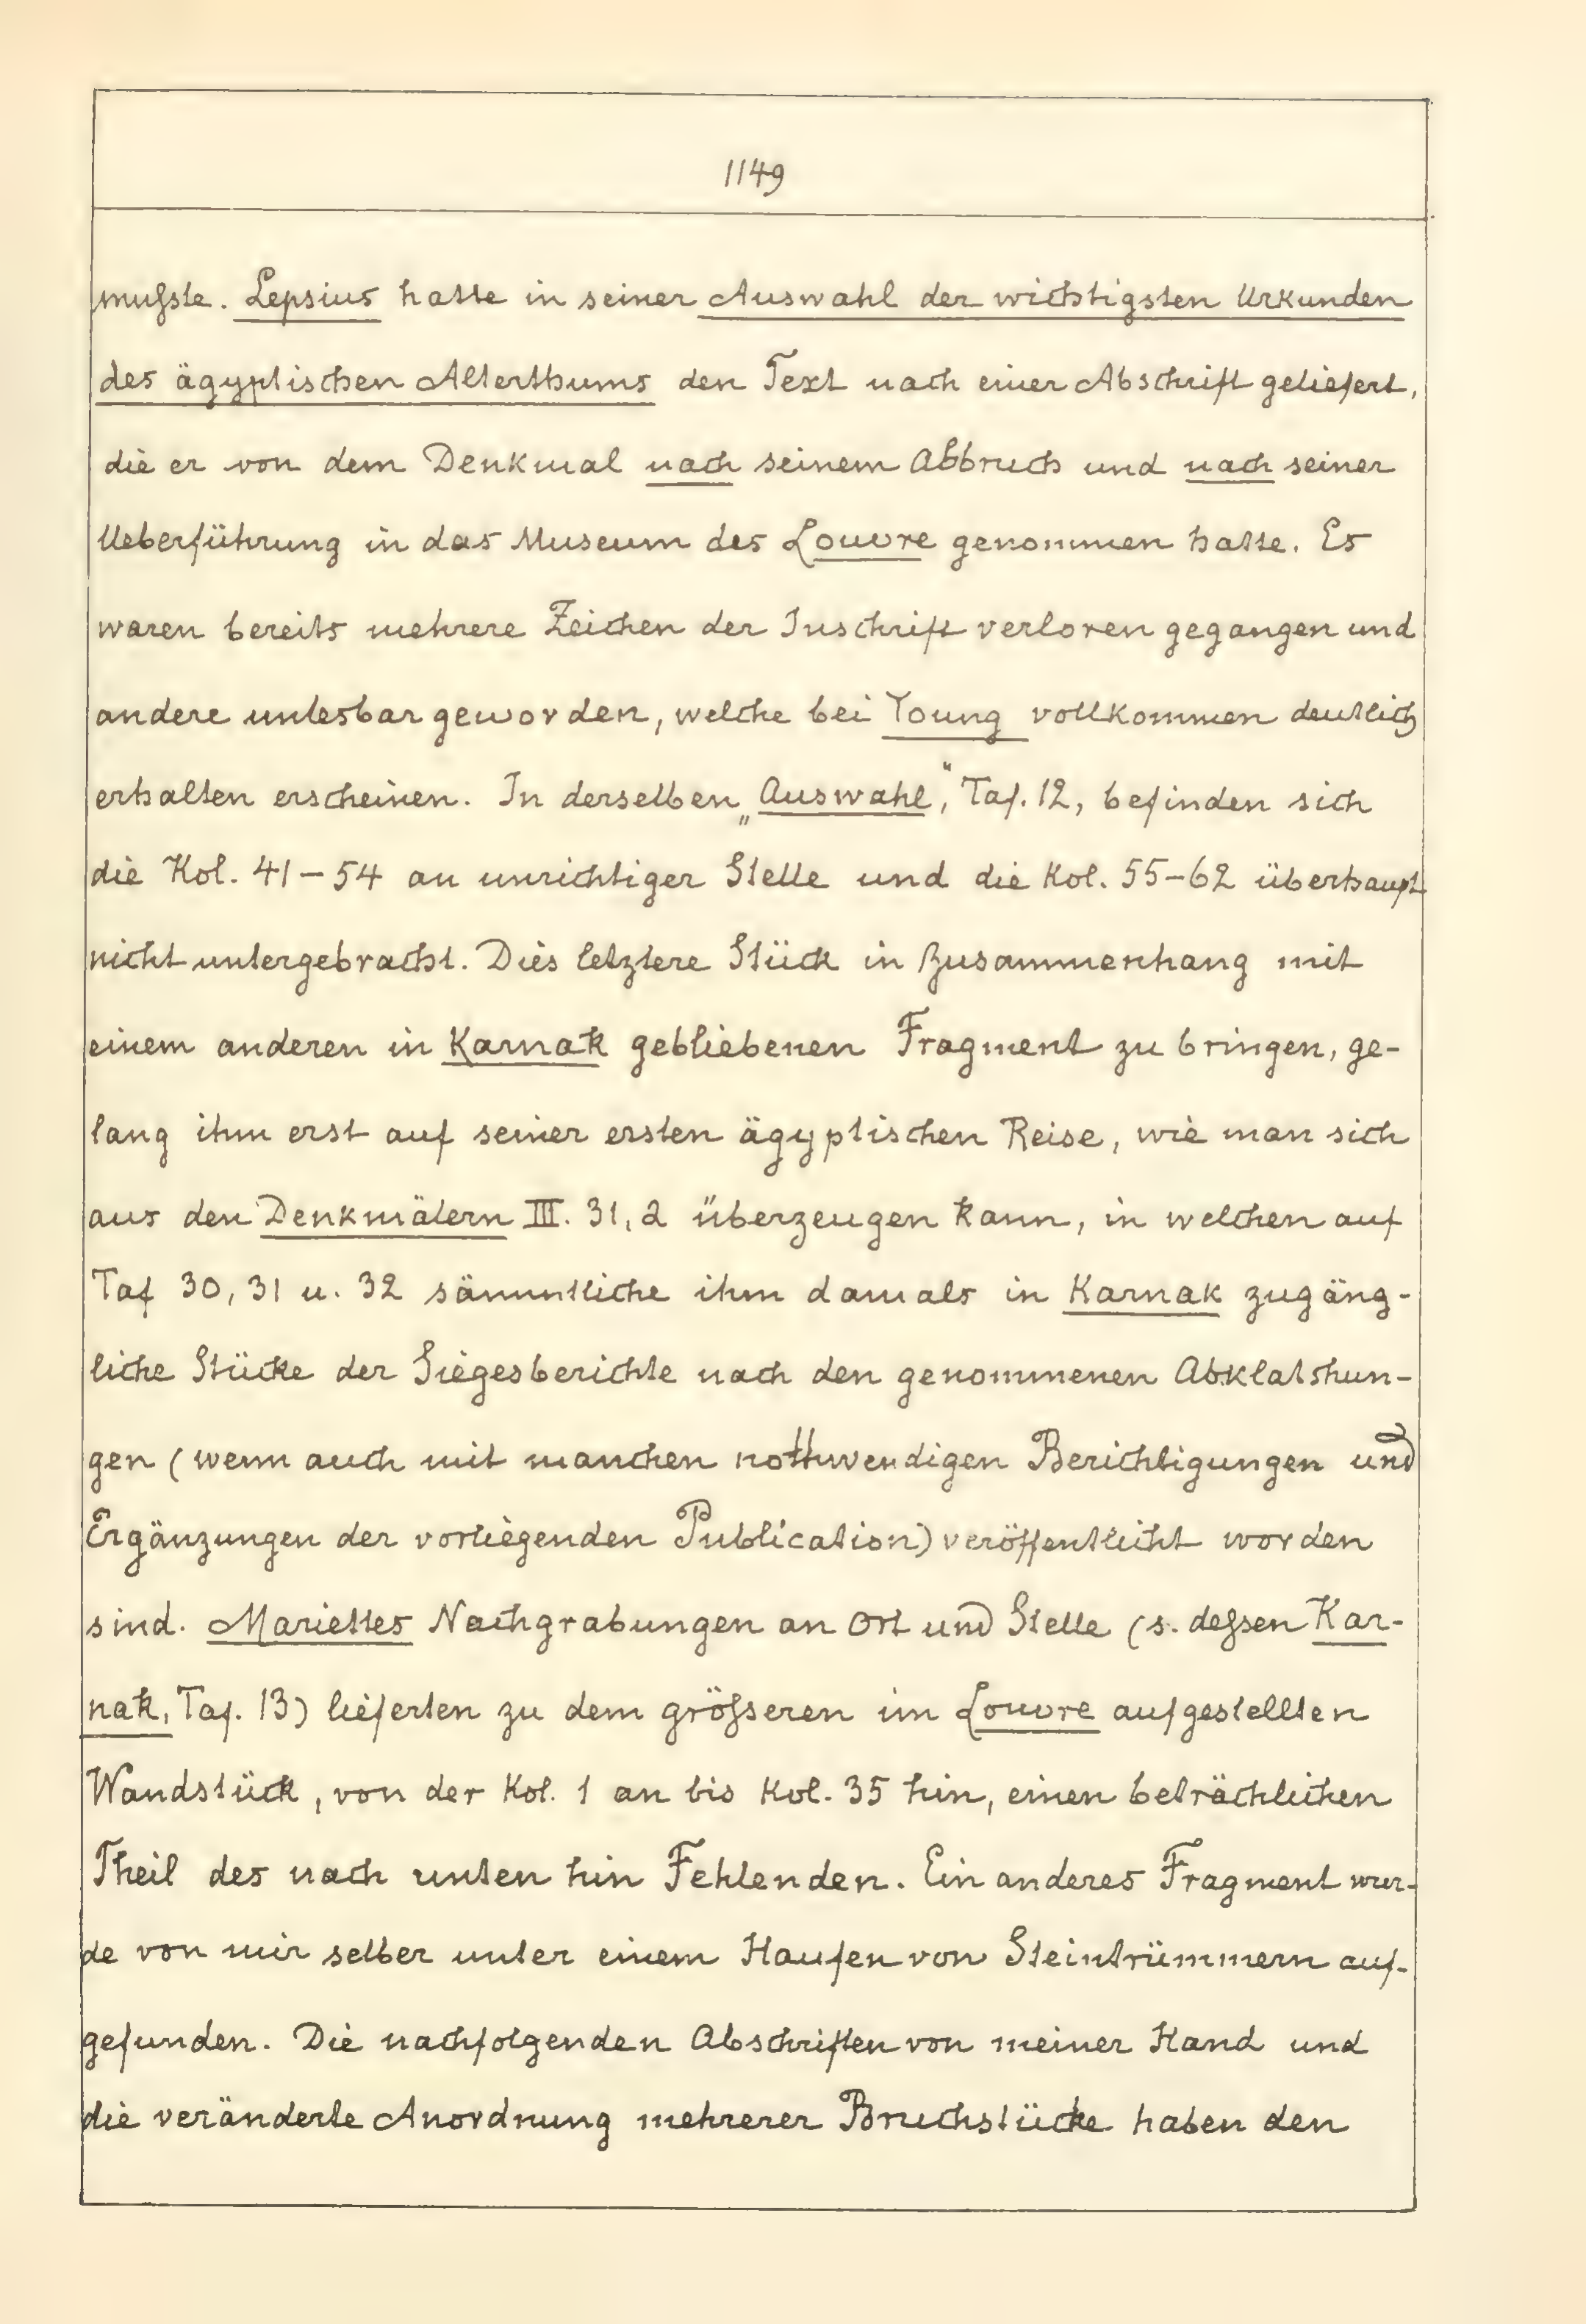 1149
mußste. Lepsius hatte in seiner Auswahl der wichtigsten Urkunden
des ägyptischen Alterthums den Text nach einer Abschrift geliefert,
die er von dem Denkmal nach seinem Abbruch und nach seiner
Ueberführung in das Museum des Louvre genommen hatte. Es
waren bereits mehrere Zeichen der Inschrift verloren gegangen und
andere unlesbar geworden, welche bei Young vollkommen deutlich
erhalten erscheinen. In derselben „Auswahl“, Taf. 12, befinden sich
die Kol. 41–54 an unrichtiger Stelle und die Kol. 55–62 überhaupt
nicht untergebracht. Dies letztere Stück in Zusammenhang mit
einem anderen in Karnak gebliebenen Fragment zu bringen, ge-
lang ihm erst auf seiner ersten ägyptischen Reise, wie man sich
aus den Denkmälern III. 31,2 überzeugen kann, in welchen auf
Taf 30, 31 u. 32 sämmtliche ihm damals in Karnak zugäng-
liche Stücke der Siegesberichte nach den genommenen Abklatshun-
gen (wenn auch mit manchen nothwendigen Berichtigungen und
Ergänzungen der vorliegenden Publication) veröffentlicht worden
sind. Mariettes Nachgrabungen an Ort und Stelle (s. deßsen Kar-
nak, Taf. 13) lieferten zu dem größseren im Louvre aufgestellten
Wandstück, von der Kol. 1 an bis Kol. 35 hin, einen beträchlichen
Theil des nach unten hin Fehlenden. Ein anderes Fragment wur-
de von mir selber unter einem Haufen von Steintrümmern auf-
gefunden. Die nachfolgenden Abschriften von meiner Hand und
die veränderte Anordnung mehrerer Bruchstücke haben den